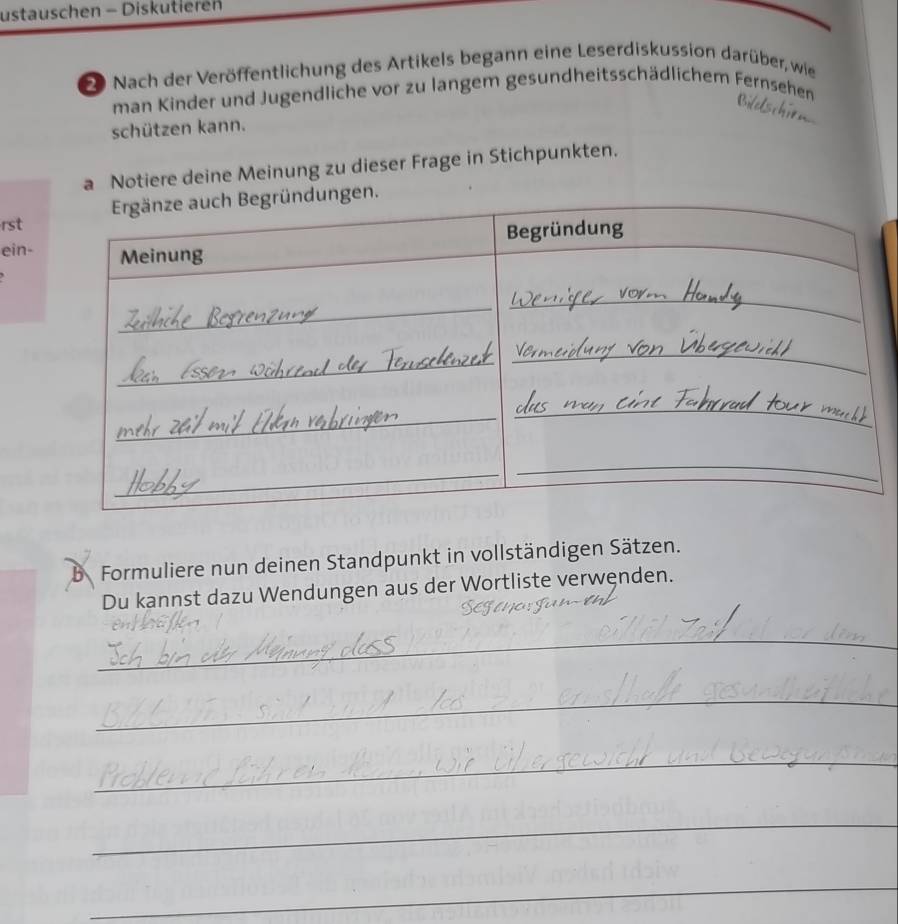 ustauschen – Diskutieren
2 Nach der Veröffentlichung des Artikels begann eine Leserdiskussion darüber, wie
man Kinder und Jugendliche vor zu langem gesundheitsschädlichem Fernsehen
Bildschirm
schützen kann.
a Notiere deine Meinung zu dieser Frage in Stichpunkten.
Ergänze auch Begründungen.
rst
ein-
Meinung
Begründung
Zeitliche Begrenzung
weniger vorm Handy
kein Essen während der
vermeidung von Übergewicht
mehr zeit mit Eltern verbringen
das man eine Fahrrad tour macht
Hobby
b Formuliere nun deinen Standpunkt in vollständigen Sätzen.
Du kannst dazu Wendungen aus der Wortliste verwenden.
entkräften
Gegenargument
Ich bin der Meinung dass Zeit vor dem
sind ernsthafte gesundheitliche
Probleme führen wie übergewicht und